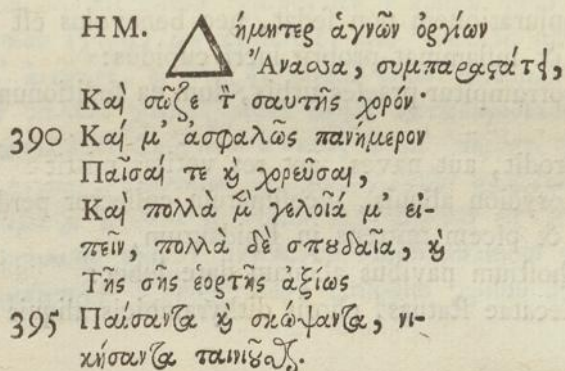 ΗΜ. Δήμητερ ἁγνῶν ὀργίων
Ἄνασσα, συμπαραστάτει,
Καὶ σῶζε τὸν σαυτῆς χορόν·
390 Καί μ' ἀσφαλῶς πανήμερον
Παῖσαί τε καὶ χορεῦσαι,
Καὶ πολλὰ μὲν γελοῖά μ' εἰ-
πεῖν, πολλὰ δὲ σπουδαῖα, καὶ
Τῆς σῆς ἑορτῆς ἀξίως
395 Παίσαντα καὶ σκώψαντα, νι-
κήσαντα ταινιοῦσθαι.